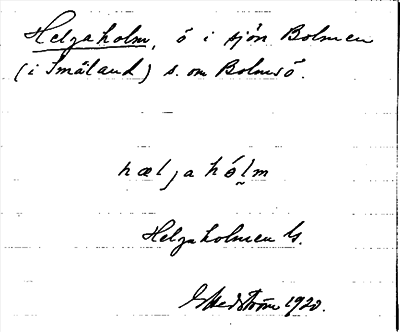 Helgaholm, ö i sjön Bolmen
(i Småland) s. om Bolmsö.
hæljahól̰m
Helgaholmen G.
GHedström 1920.